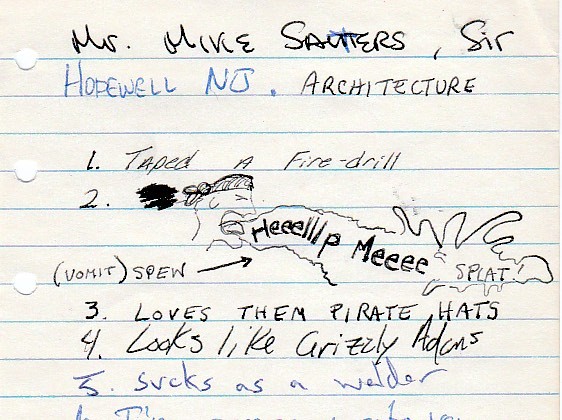 Mr. Mike Sautters, Sir
Hopewell NJ. Architecture
1. Taped a Fire-drill
2.
Heeelllp Meeee
(vomit) spew
SPLAT!
3. Loves them pirate hats
4. Looks like Grizzly Adams
5. sucks as a welder